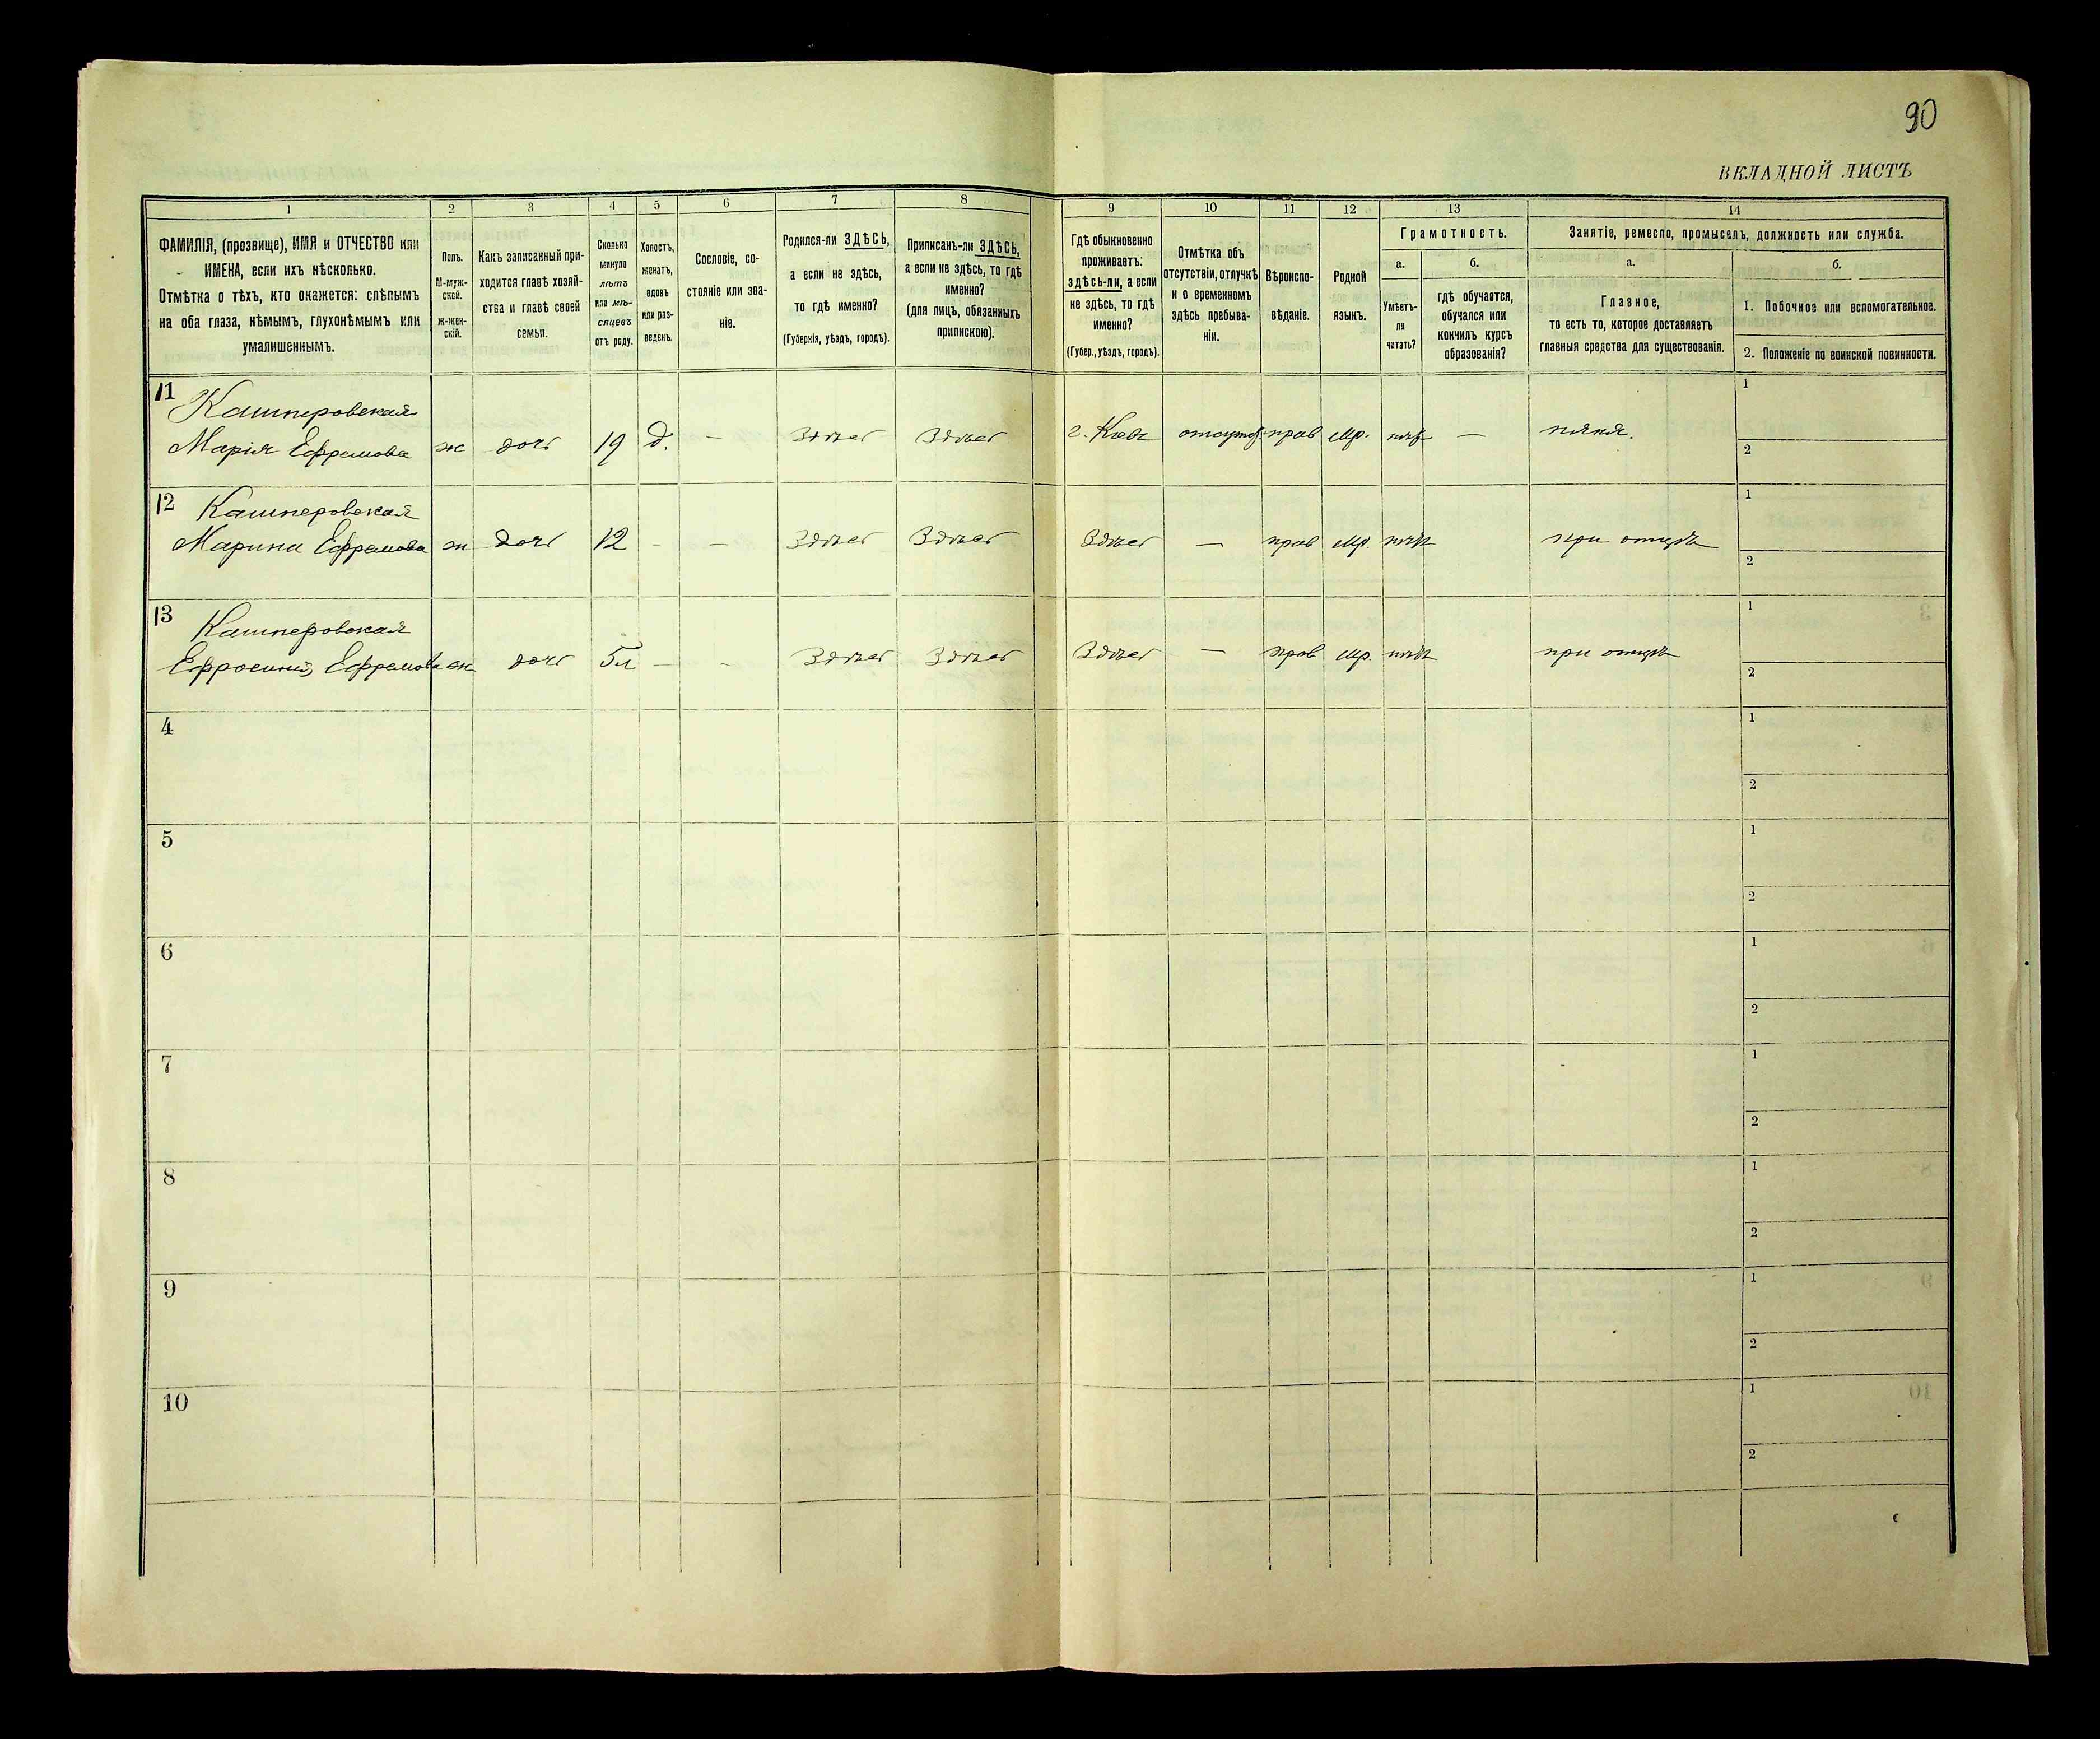 90
ВКЛАДНОЙ ЛИСТЪ
1
2
3
4
5
6
7
8
9
10
11
12
13
14
ФАМИЛІЯ, (прозвище), ИМЯ и ОТЧЕСТВО или
ИМЕНА, если ихъ нѣсколько.
Отмѣтка о тѣхъ, кто окажется: слѣпымъ
на оба глаза, нѣмымъ, глухонѣмымъ или
умалишеннымъ.
Полъ.
М-муж-
ской.
ж-жен-
скій.
Какъ записанный при-
ходится главѣ хозяй-
ства и главѣ своей
семьи.
Сколько
минуло
лѣтъ
или мѣ-
сяцевъ
отъ роду.
Холостъ,
женатъ,
вдовъ
или раз-
веденъ.
Сословіе, со-
стояніе или зва-
ніе.
Родился-ли ЗДѢСЬ,
а если не здѣсь,
то гдѣ именно?
(Губернія, уѣздъ, городъ).
Приписанъ-ли ЗДѢСЬ,
а если не здѣсь, то гдѣ
именно?
(для лицъ, обязанныхъ
припискою).
Гдѣ обыкновенно
проживаетъ:
здѣсь-ли, а если
не здѣсь, то гдѣ
именно?
(Губер., уѣздъ, городъ).
Отмѣтка объ
отсутствіи, отлучкѣ
и о временномъ
здѣсь пребыва-
ніи.
Вѣроиспо-
вѣданіе.
Родной
языкъ.
Грамотность.
а.
Умѣетъ-
ли
читать?
б.
гдѣ обучается,
обучался или
кончилъ курсъ
образованія?
Занятіе, ремесло, промыселъ, должность или служба.
а.
Главное,
то есть то, которое доставляетъ
главныя средства для существованія.
б.
1. Побочное или вспомогательное.
2. Положеніе по воинской повинности.
11 Кашперовская
Марія Ефремова ж дочь 19 д. — Здѣсь Здѣсь г. Кіевъ отсутст. прав мр. нѣт — няня.
1
2
12 Кашперовская
Марина Ефремова ж дочь 12 - — Здѣсь Здѣсь Здѣсь — прав мр. нѣтъ при отцѣ
1
2
13 Кашперовская
Ефросинія Ефремова ж дочь 5л — - Здѣсь Здѣсь Здѣсь — прав мр. нѣтъ при отцѣ
1
2
4
1
2
5
1
2
6
1
2
7
1
2
8
1
2
9
1
2
10
1
2